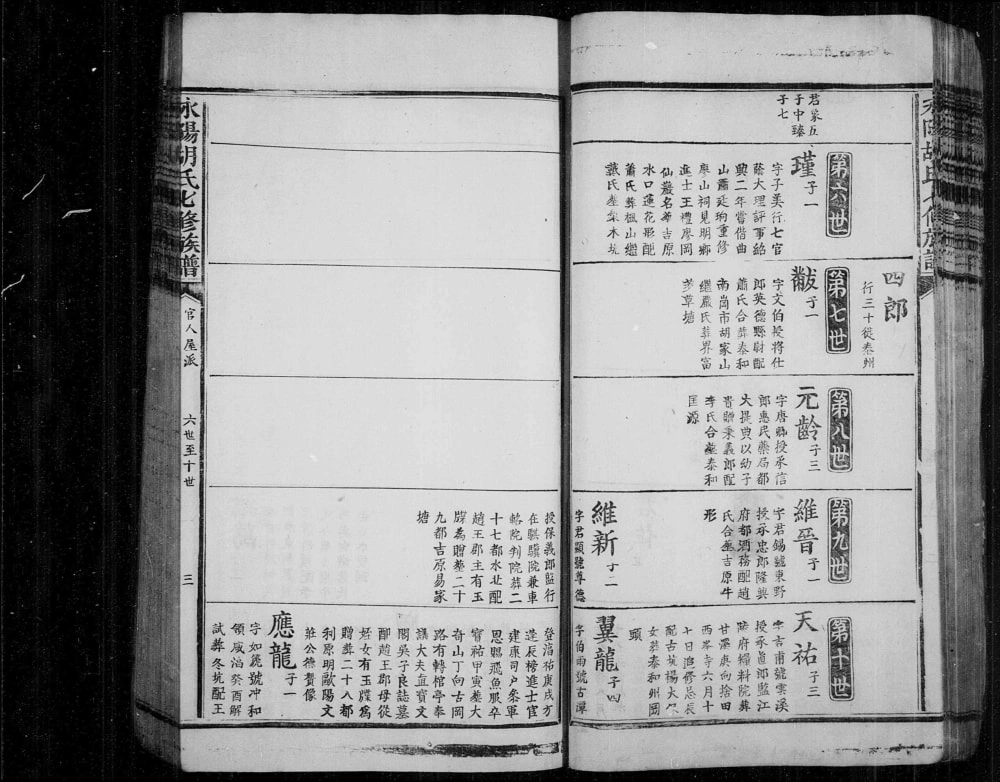 永陽胡氏七修族譜
四郎
行三十徙泰州
君蒙五
于中臻
子七
第六世
瑾子一
字子美行七官
蔭大理評事紹
興二年嘗偕曲
山蕭延珣重修
廖山祠見明鄉
進士王禮廖岡
仙叢名葬吉原
水口蓮花形配
蕭氏葬楓山繼
戴氏塟梨木坑
第七世
黻子一
字文伯授將仕
郎英德縣尉配
蕭氏合葬泰和
南崗市胡家山
繼嚴氏葬界富
茅草塘
第八世
元齡子三
字唐縣授承信
郎惠民藥局都
大提貢以幼子
貴贈秉義郎配
李氏合塟泰和
匡源
第九世
維晉子一
字君錫號東野
授承忠郎隆興
府都酒務配趙
氏合塟吉原牛
形
維新子二
字君顯號尊德
授保義郎監行
在騏驥院兼車
輅院判院葬二
十七都水北配
趙王郡主有玉
牒為贈塟二十
九都吉原易家
塘
第十世
天祐子三
字吉甫號雲溪
授承直郎監江
陵府糧料院葬
甘澤庚向捨田
西峯寺六月十
十日追修忌辰
配古坑楊大
女葬泰和州岡
頭
翼龍子四
字伯雨號古潭
登淳祐庚戌方
逢辰榜進士官
建康司户叅軍
恩賜飛魚服卒
寶祐甲寅塟大
奇山丁向古岡
路有轉棺亭奉
議大夫直寶文
閣吳子良誌墓
配趙王郡母從
好女有玉牒為
贈葬二十八都
利原明歐陽文
莊公德賛像
應龍子一
字如麂號冲和
領咸淳癸酉解
試葬冬坑配王
永陽胡氏七修族譜
官人屋派
六世至十世
三